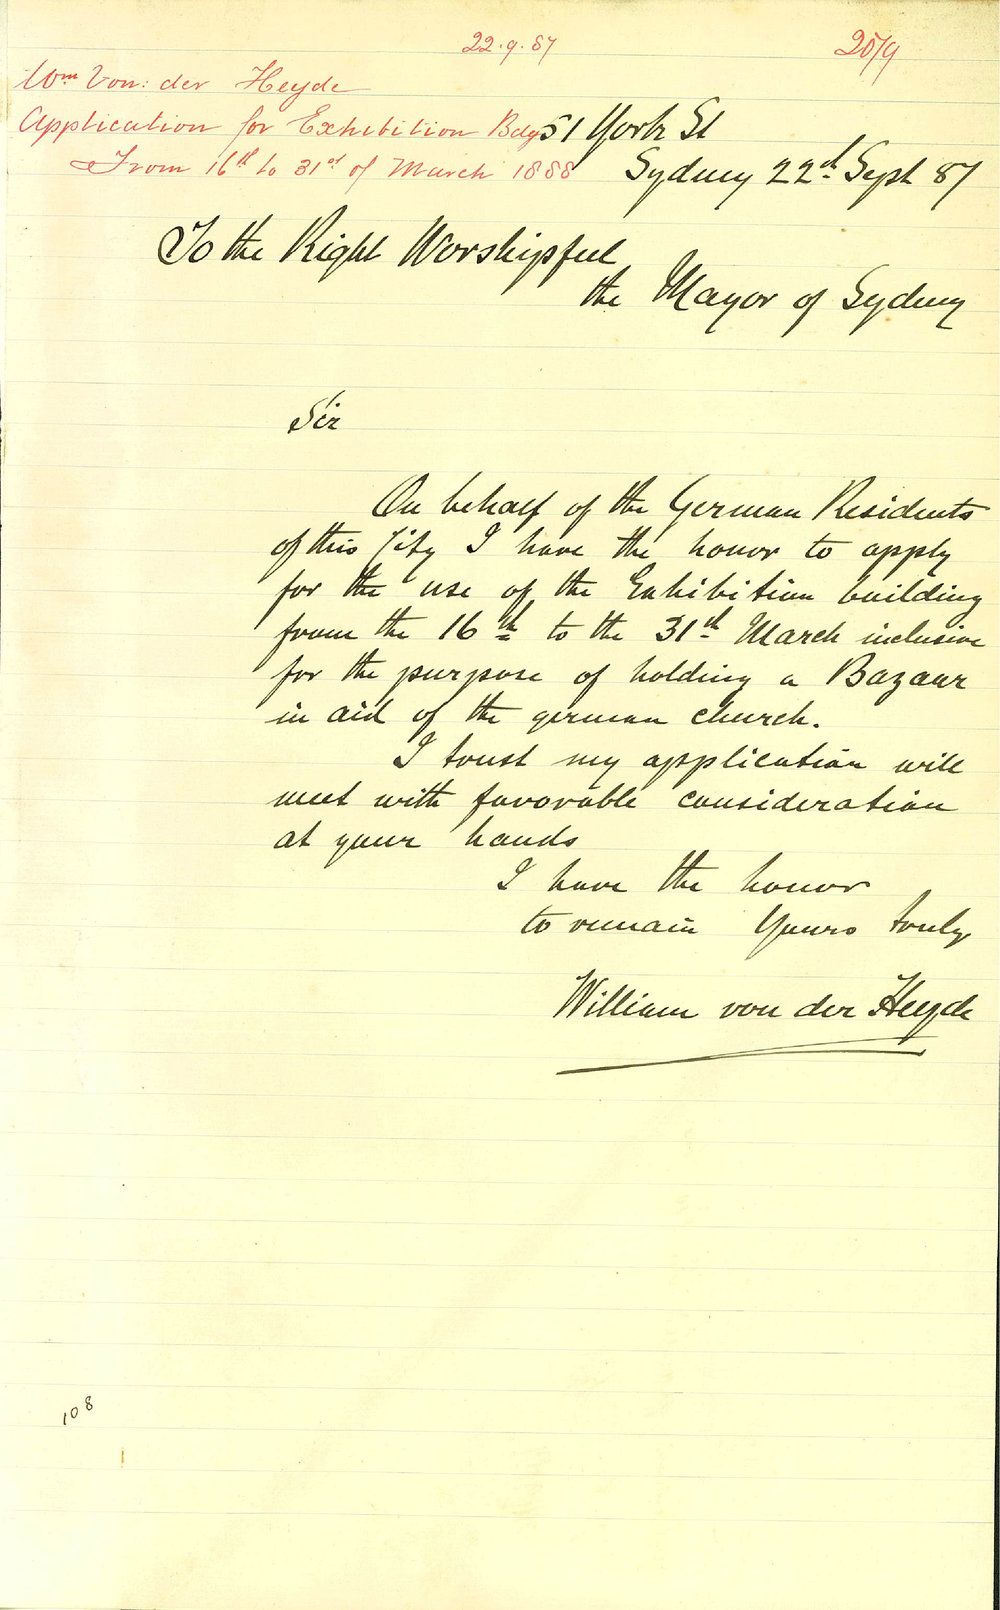 22.9.87
Wm Von: der Heyde
Application for Exhibition Bdg
From 16th to 31st of March 1888
51 York St
Sydney 22d Sept 87
To the Right Worshipful
the Mayor of Sydney
Sir
On behalf of the German Residents
of this City I have the honor to apply
for the use of the Exhibition building
from the 16th to the 31th March inclusive
for the purpose of holding a Bazaar
in aid of the german church.
I trust my application will
meet with favorable consideration
at your hands
I have the honor
to remain Yours truly
William von der Heyde
108